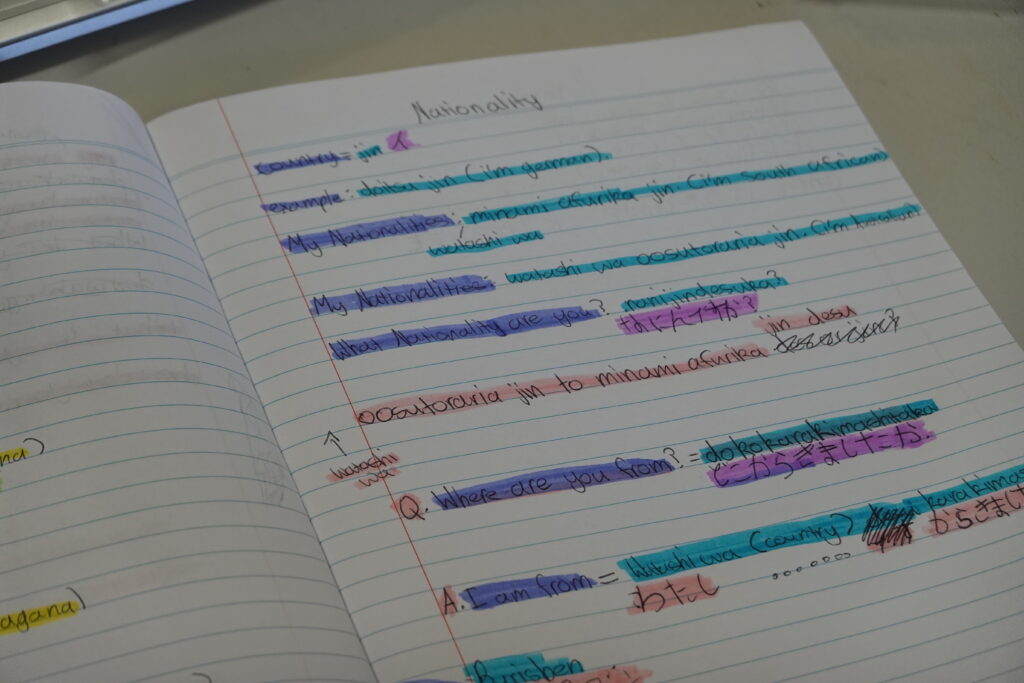 Nationality
country = jin 人
example: doitsu jin (i'm german).
My Nationalities: minami afurika jin. (i'm south african)
watashi wa
My Nationalities: watashi wa oosutoraria jin. (i'm
What Nationality are you? nanijindesuka?
なにじんですか?
jin desu
oosutoraria jin to minami afurika
watashi
wa
Q. Where are you from? = dokokarakimashitaka
どこからきましたか.
A. I am from = Watashi wa (country) karakimas
わたし ....... からきまし
na)
agana)